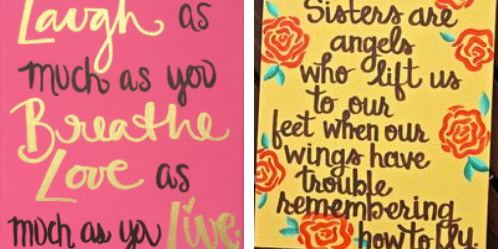 Laugh as
much as you
Breathe
Love as
much as you live.
Sisters are
angels
who lift us
to our
feet when our
wings have
trouble
remembering
how to fly.